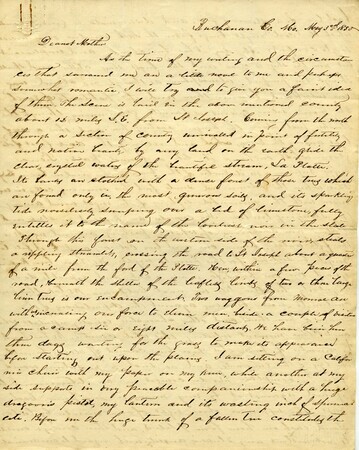 Buchanan Co. Mo. May 3d 1850
Dearest Mother
As the time of my writing and the circumstan
ces that surround me are a little novel to me and perhaps
somewhat romantic I will try and to give you a faint idea
of them. The scene is laid in the above mentioned county
about 12 miles S.E. from St Joseph. Coming from the north
through a section of country unrivaled in point of fertility
and native beauty by any land on the earth, glide the
clear, crystal waters of the beautiful stream, La Platte.
Its banks are clothed with a dense forest of those trees which
are found only in the most generous soils, and its sparkling
tide noiselessly sweeping over a bed of limestone, fully
entitles it to the name of the loveliest river in the state.
Through this forest on the western side of the river steals
a rippling streamlet, crossing the road to St Joseph about a quarter
of a mile from the ford of the Platte. Here within a few paces of the
road, beneath the shelter of the leafless limbs of two or three large
lime trees is our encampment. Two waggons from
with and one from to them, and beside a couple of visitors
from a camp six or eight miles distant. We have been here
three days waiting for the grass to make its appearance
before starting out upon the plains. I am sitting on a Califor
nia chair with my paper on my knee, while another at my
side supports in my peaceable companionship with a huge
dragoon's pistol, my lantern and its wasting inch of sperma
ceti. Before me the huge trunk of a fallen tree constitutes th